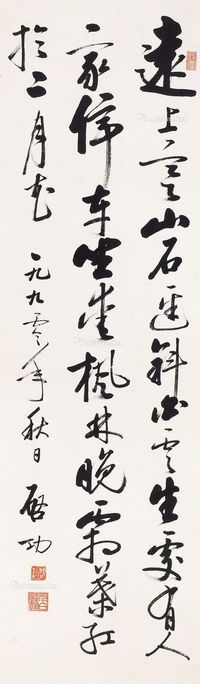 遠上寒山石徑斜白雲生處有人
家停車坐愛楓林晚霜葉紅
於二月花 一九九零年秋日 啓功